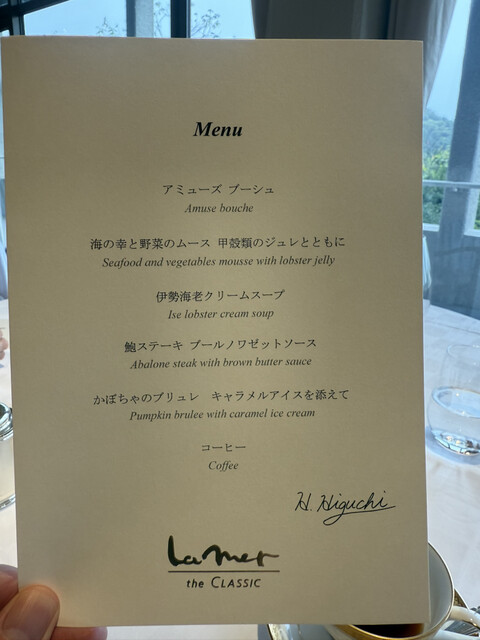 Menu
アミューズ ブーシュ
Amuse bouche
海の幸と野菜のムース 甲殻類のジュレとともに
Seafood and vegetables mousse with lobster jelly
伊勢海老クリームスープ
Ise lobster cream soup
鮑ステーキ ブールノワゼットソース
Abalone steak with brown butter sauce
かぼちゃのブリュレ　キャラメルアイスを添えて
Pumpkin brulee with caramel ice cream
コーヒー
Coffee
H. Higuchi
La mer
the CLASSIC